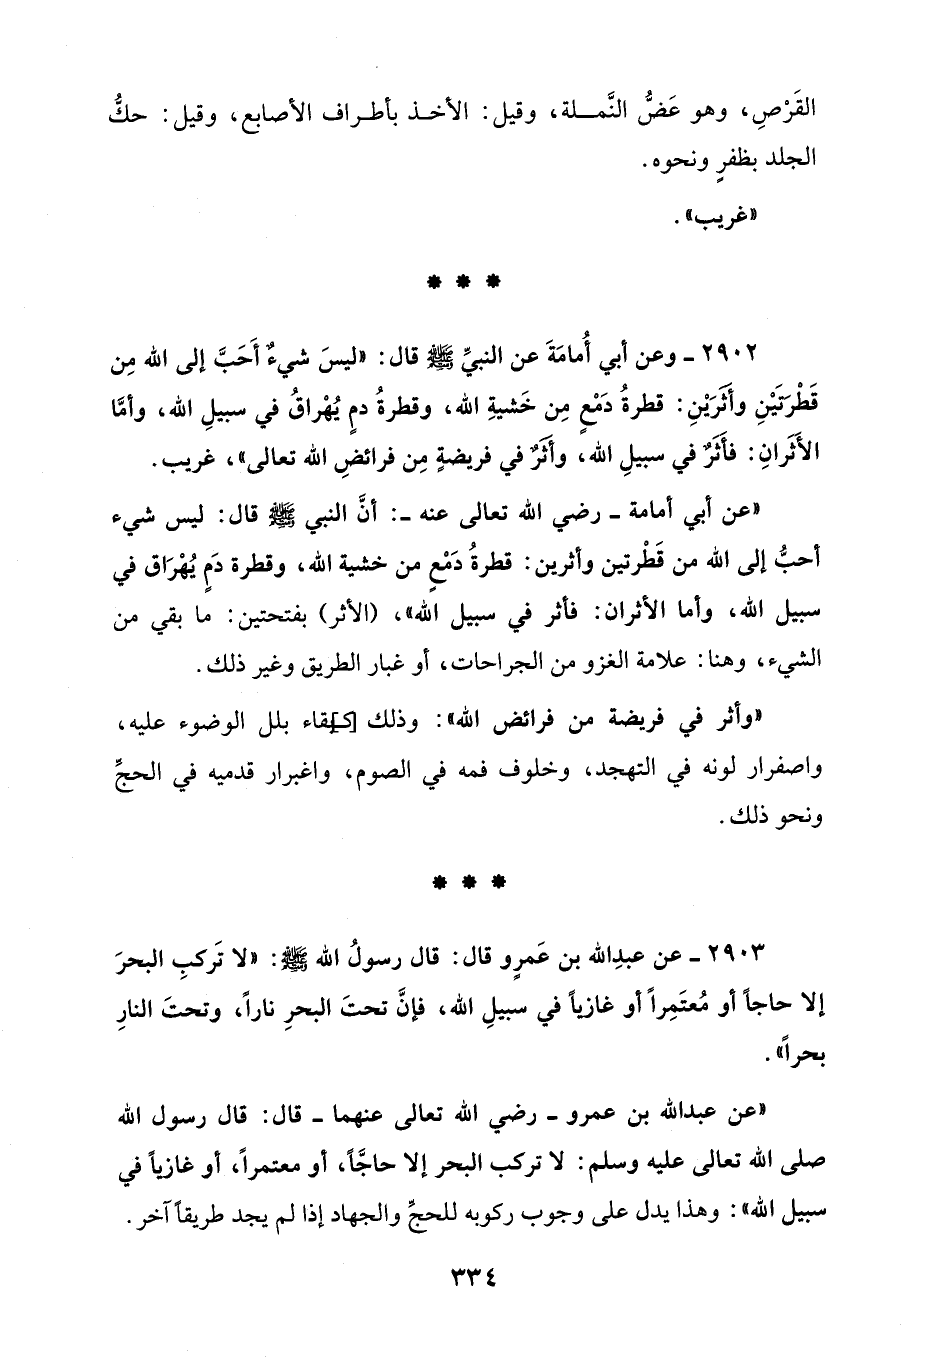 القَرْصِ، وهو عَضُّ النَّمـلة، وقيل: الأخـذ بأطـراف الأصابع، وقيل: حكُّ
الجلد بظفرٍ ونحوه.
«غريب».
* * *
٢٩٠٢ ـ وعن أبي أُمامَةَ عن النبيِّ ﷺ قال: «ليسَ شيءٌ أَحَبَّ إلى الله مِن
قَطْرَتَيْنِ وأَثَرَيْنِ: قطرةُ دَمْعٍ مِن خَشيةِ الله، وقطرةُ دمٍ يُهْراقُ في سبيلِ الله، وأمَّا
الأَثَرانِ: فأَثَرٌ في سبيلِ الله، وأَثَرٌ في فريضةٍ مِن فرائضِ الله تعالى»، غريب.
«عن أبي أمامة ـ رضي الله تعالى عنه ـ: أنَّ النبي ﷺ قال: ليس شيء
أحبُّ إلى الله من قَطْرتين وأثرين: قطرةُ دَمْعٍ من خشية الله، وقطرة دَمٍ يُهْرَاق في
سبيل الله، وأما الأثران: فأثر في سبيل الله»، (الأثر) بفتحتين: ما بقي من
الشيء، وهنا: علامة الغزو من الجراحات، أو غبار الطريق وغير ذلك.
«وأثر في فريضة من فرائض الله»: وذلك [كـ]بقاء بلل الوضوء عليه،
واصفرار لونه في التهجد، وخلوف فمه في الصوم، واغبرار قدميه في الحجِّ
ونحو ذلك.
* * *
٢٩٠٣ ـ عن عبدِالله بن عَمرٍو قال: قال رسولُ الله ﷺ: «لا تَركبِ البحرَ
إلا حاجاً أو مُعتَمِراً أو غازياً في سبيلِ الله، فإنَّ تحتَ البحرِ ناراً، وتحتَ النارِ
بحراً».
«عن عبدالله بن عمرو ـ رضي الله تعالى عنهما ـ قال: قال رسول الله
صلى الله تعالى عليه وسلم: لا تركب البحر إلا حاجَّاً، أو معتمراً، أو غازياً في
سبيل الله»: وهذا يدل على وجوب ركوبه للحجِّ والجهاد إذا لم يجد طريقاً آخر.
٣٣٤